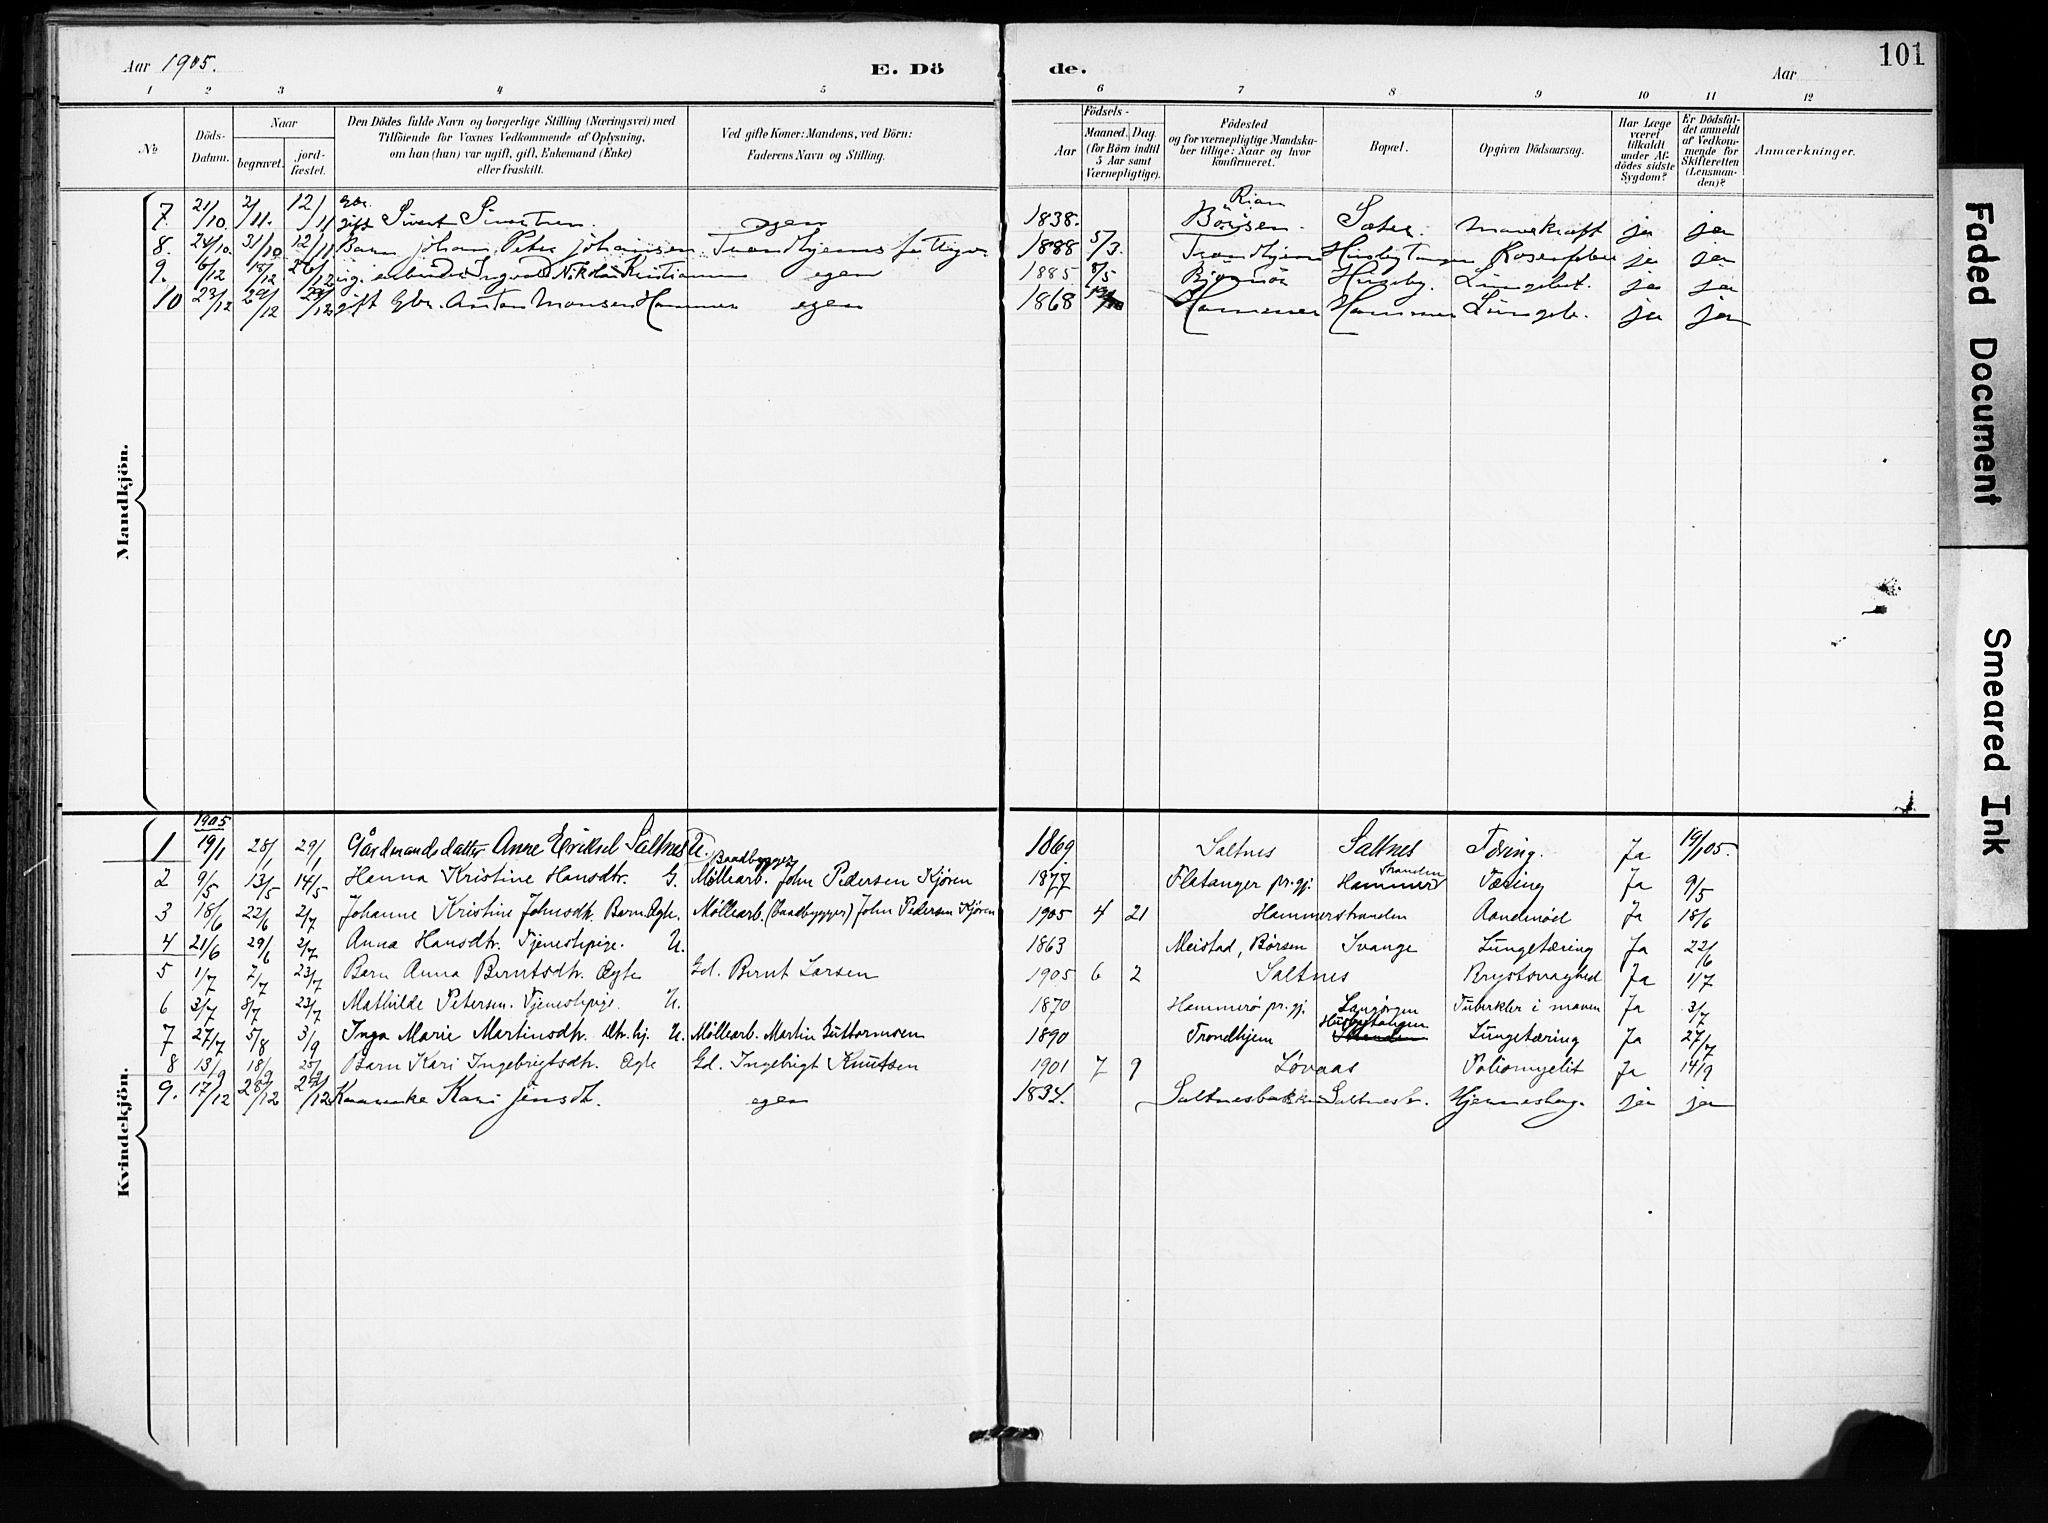 Aar 1905. E. Dö de. Aar 101
1 2 3 4 5 6 7 8 9 10 11 12
No
Döds-Datum.
Naar
begravet.
jord-fæstet.
Den Dödes fulde Navn og borgerlige Stilling (Næringsvei) med
Tilföiende for Voxnes Vedkommende af Oplysning,
om han (hun) var ugift, gift, Enkemand (Enke)
eller fraskilt.
Ved gifte Koner: Mandens, ved Börn:
Faderens Navn og Stilling.
Födsels-
Aar
Maaned. Dag.
(for Börn indtil
5 Aar samt
Værnepligtige).
Födested
og for værnepligtige Mandska-
ber tillige: Naar og hvor
konfirmeret.
Bopæl.
Opgiven Dödsaarsag.
Har Læge
været
tilkaldt
under Af-
dödes sidste
Sygdom?
Er Dödsfal-
det anmeldt
af Vedkom-
mende for
Skifteretten
(Lensman-
den)?
Anmærkninger.
Mandkjön.
7. 21/10. 2/11. 12/11 Gbr. gift Sivert egen 1838. Rian Börsen. Sæter. ja ja
8. 24/10. 31/10 12/11 Barn Johan Peter Johansen Trondhjems 1888 5/3. Trondhjem ja ja
9. 6/12 18/12 26/12 ug. arbeider Ingvald Nikolai Kristiansen egen 1885 8/5 Huseby. ja ja
10 23/12 29/12 29/12 gift Gbr. Anton Monsen Hammer egen 1868 Hammer Hammer ja ja
Kvindekjön.
1905
1 19/1 28/1 29/1 Gårdmandsdatter Anne Eriksd. Saltnes U. 1869. Saltnes Saltnes Tæring. Ja 19/1 05.
2 9/5 13/5 14/5 Hanna Kristine Hansdtr. G. Baadbygger Møllearb. John Pedersen Kjören 1877 Flatanger pr.gj. Hammerstranden Tæring Ja 9/5
3 18/6 22/6 2/7 Johanne Kristine Johnsdtr. Barn Ægte. Møllearb. (Baadbygger) John Pedersen Kjören 1905 4 21 Hammerstranden Aandenød Ja 18/6
4 21/6 29/6 2/7 Anna Hansdtr. Tjenestepige. U. 1863 Meistad, Börsen Svange Lungetæring Ja 22/6
5 1/7 7/7 23/7 Barn Anna Berntsdtr. Ægte Gd. Bernt Larsen 1905 6 2 Saltnes Brystsvaghed Ja 1/7
6 3/7 8/7 23/7 Mathilde Petersen. Tjenestepige. U. 1870 Hammerø pr.gj. Langörgen Tuberkler i maven Ja 3/7
7 27/7 5/8 3/9 Inga Marie Martinsdtr. Dtr. hj. U. Møllearb. Martin Guttormsen 1890 Trondhjem Husbytangen Lungetæring Ja 27/7
8 13/9 18/9 25/9 Barn Kari Ingebrigtsdtr. Ægte Gd. Ingebrigt Knutsen 1901 7 9 Løvaas Poliomyelit Ja 14/9
9. 17/12 28/12 29/12 Kaarenke Kari Jensdt. egen 1834. Saltnesbakken Saltnesbr. ja ja
Faded Document
Smeared Ink